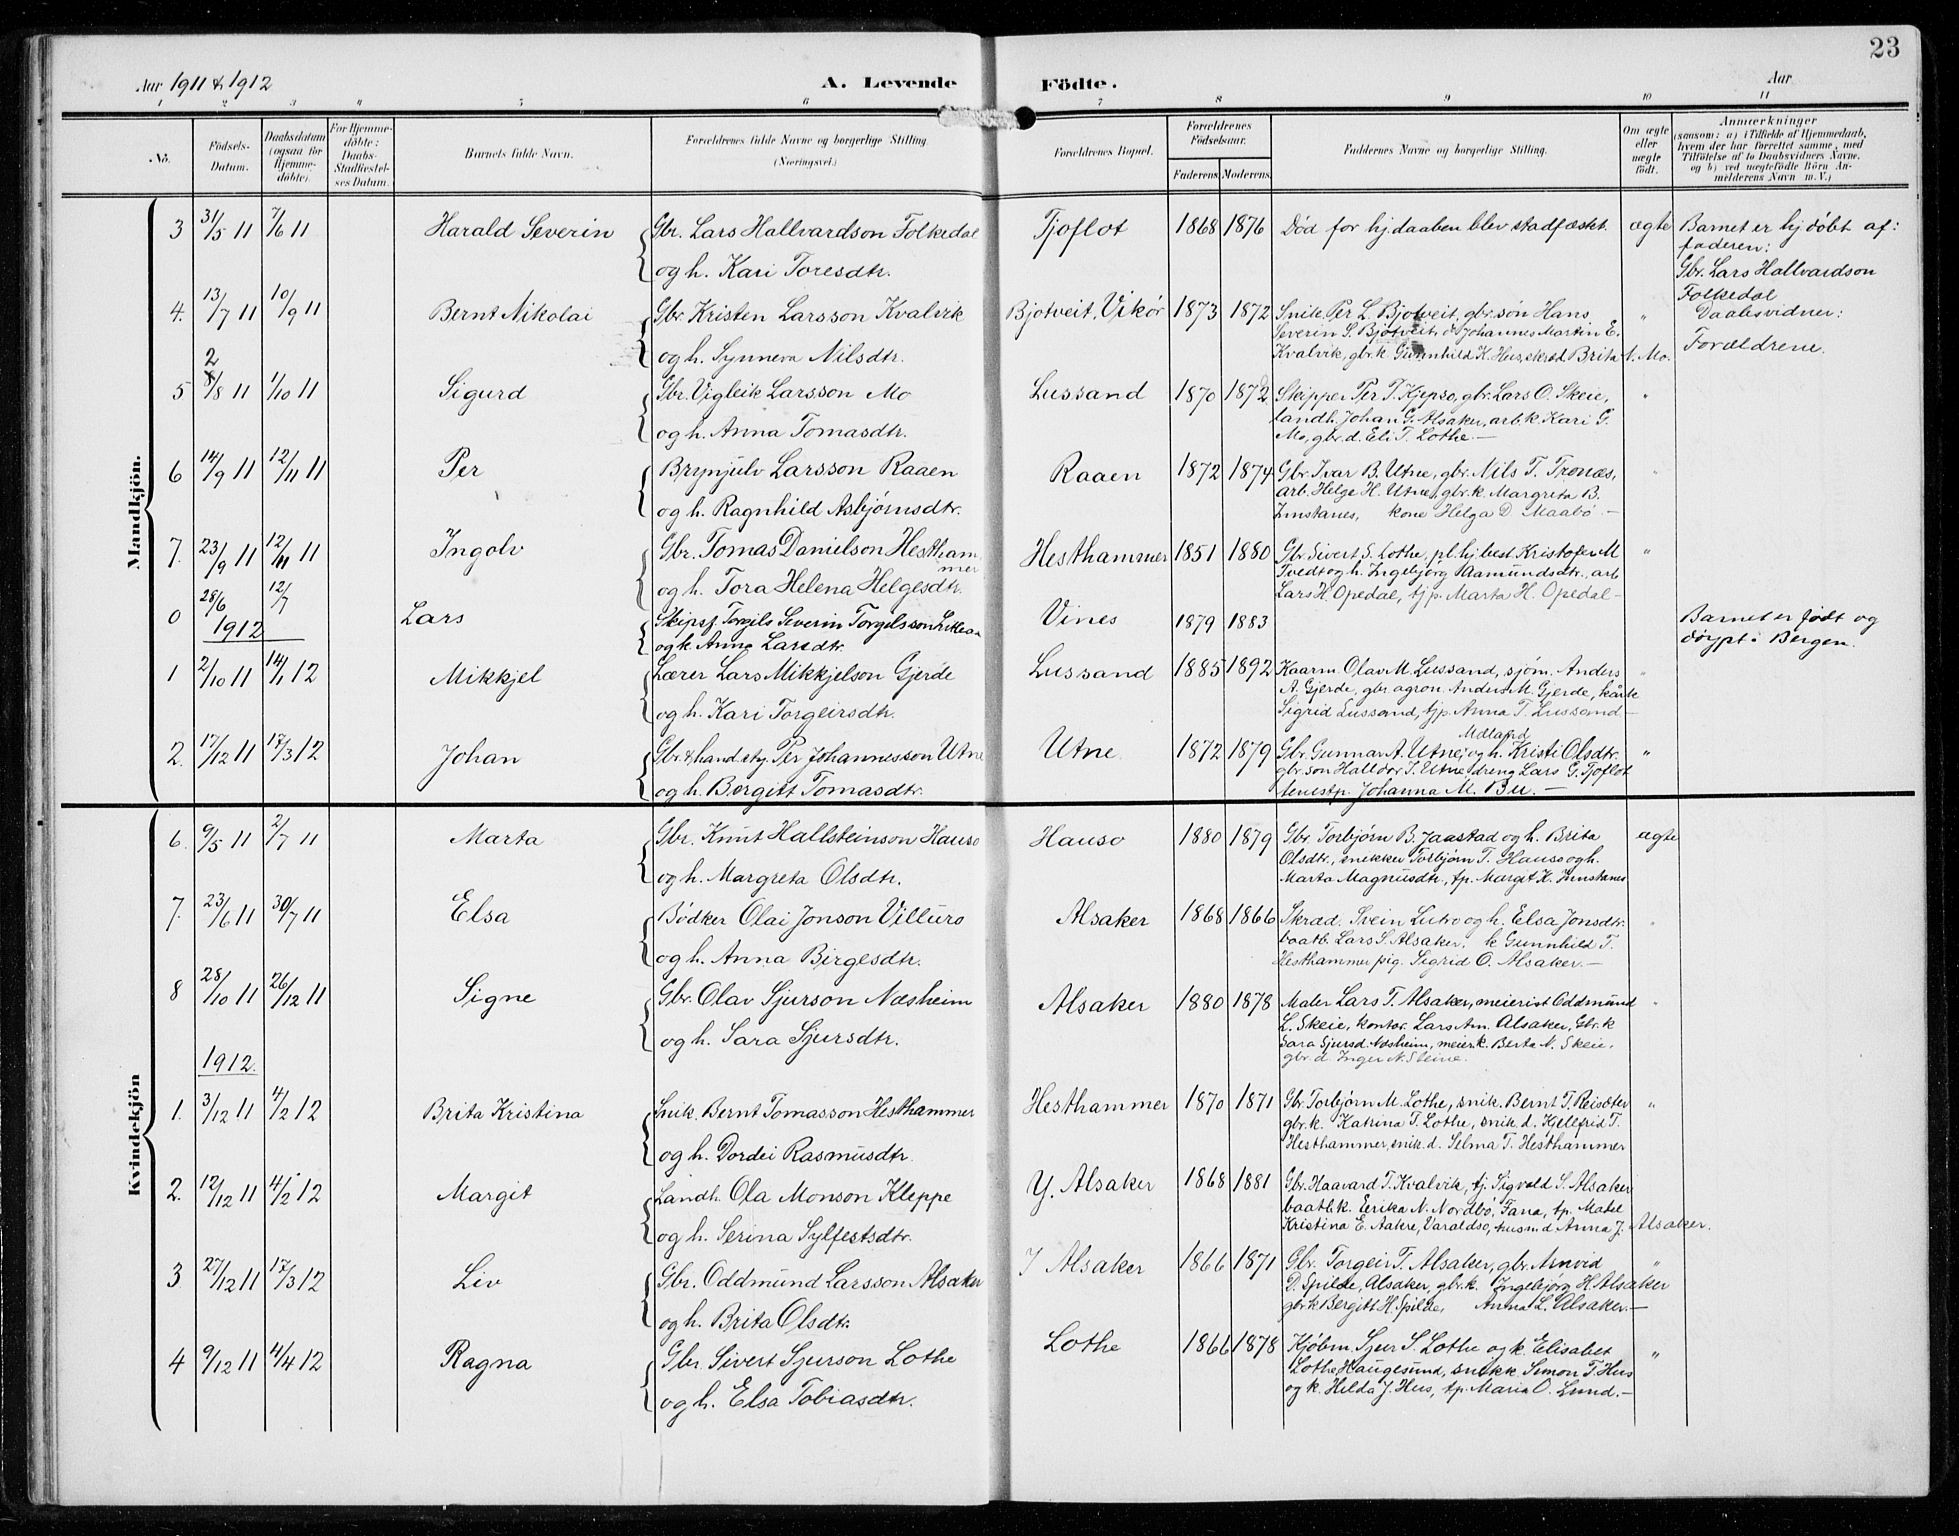 23
Aar 1911 & 1912
A. Levende Födte.
Aar
1 2 3 " 5 6 7 8 9 10 11
No.
Födsels-Datum.
Daabsdatum (ogsaa for Hjemme-döbte).
For Hjemme-döbte: Daabs-Stadfæstel-ses Datum.
Barnets fulde Navn.
Forældrenes fulde Navne og borgerlige Stilling. (Næringsvei.)
Forældrenes Bopæl.
Forældrenes Födselsaar.
Faderens. Moderens.
Faddernes Navne og borgerlige Stilling.
Om ægte eller uægte födt.
Anmærkninger
(saasom: a) i Tilfælde af Hjemmedaab, hvem der har forrettet samme, med Tilföielse af to Daabsvidners Navne, og b) ved uægtefödte Börn An-melderens Navn m. V.)
Mandkjön.
3 31/5 11 7/6 11 Harald Severin Gbr. Lars Hallvardson Folkedal Tjoflot 1868 1876 Död for hj.daaben blev stadfæstet. ægte Barnet er hj.döbt af:
faderen:
og h. Kari Toresdtr. Gbr. Lars Hallvardson
Folkedal
4. 13/7 11 10/9 11 Bernt Nikolai Gbr. Kristen Larsson Kvalvik Bjotveit, Vikör 1873 1872 Snik. Per L. Bjotveit, gbr.sön Hans " Daabsvidner:
Severin S. Bjotveit, & Johannes Martin E.
og h. Synneva Nilsdtr. Kvalvik, gbr.k. Gunnhild K. Hus, skræd. Brita N. Mo. Forældrene.
5 2/8 11 1/10 11 Sigurd Gbr. Vigleik Larsson Mo Lussand 1870 1872 Skipper Per T. Kjepso, gbr. Lars O. Skeie, "
landh. Johan G. Alsaker, arb.k. Kari G.
og h. Anna Tomasdtr. Mo, gbr.d. Eli T. Lothe.—
6 14/9 11 12/11 11 Per Brynjulv Larsson Raaen Raaen 1872 1874 Gbr. Ivar B. Utne, gbr. Nils T. Tronæs, "
arb. Helge H. Utne, gbr.k. Margreta B.
og h. Ragnhild Asbjørnsdtr. Instanes, kone Helga D. Maabö.—
7. 23/9 11 12/11 11 Ingolv Gbr. Tomas Danielson Hestham- Hesthammer 1851 1880 Gbr. Sivert S. Lothe, pl.hj.best. Kristofer M "
mer Tvedt og h. Ingebjörg Aamundsdtr., arb
og h. Tora Helena Helgesdtr. Lars H. Opedal, tj.p. Marta H. Opedal—
0 28/6 12/7 Lars Skipsf. Torgils Severin Torgilsson Vines 1879 1883 Barnet er födt og
1912 og k. Anna Larsdtr. döypt i Bergen.
1 2/10 11 14/1 12 Mikkjel Lærer Lars Mikkjelson Gjerde Lussand 1885 1892 Kaarm. Olav M. Lussand, sjöm. Anders "
A. Gjerde, gbr. agron. Anders M. Gjerde, kårk.
og h. Kari Torgeirsdtr. Sigrid Lussand, tj.p. Anna T. Lussand—
2. 17/12 11 17/3 12 Johan Gbr. & hand.sty. Per Johannesson Utne Utne 1872 1879 Gbr. Gunnar A. Utne, og h. Kristi Olsdtr. "
Midland
gbr.sön Halldor J. Utne dreng Lars G. Tjoflot
og h. Bergitt Tomasdtr. tenestp. Johanna M. Bu.—
Kvindekjön
6. 9/5 11 2/7 11 Marta Gbr. Knut Hallsteinson Hauso Hauso 1880 1879 Gbr. Torbjørn B. Jaastad og h. Brita ægte
Olsdtr., snekker Torbjørn T. Hauso og h.
og h. Margreta Olsdtr. Marta Magnusdtr., tp. Margit K. Instanes
7. 23/6 11 30/7 11 Elsa Bødker Olai Jonson Villuro Alsaker 1868 1866 Skræd. Svein Lutro og h. Elsa Jonsdtr. "
baatb. Lars S. Alsaker, k Gunnhild T.
og h. Anna Birgesdtr. Hesthammer pig. Sigrid O. Alsaker.—
8 28/10 11 26/12 11 Signe Gbr. Olav Sjurson Næsheim Alsaker 1880 1878 Maler Lars T. Alsaker, meierist Oddmund "
L. Skeie, kontor. Lars Am. Alsaker, Gbr.k
og h. Sara Sjursdtr. Sara Sjursd. Næsheim, meier.k. Berta N. Skeie,
gbr.d. Inger N. Steine.
1912.
1. 3/12 11 4/2 12 Brita Kristina Snik. Bernt Tomasson Hesthammer Hesthammer 1870 1871 Gbr. Torbjørn M. Lothe, snik. Bernt T. Reisæter "
gbr.k. Katrina T. Lothe, snik.d. Kjellfrid T.
og h. Dordei Rasmusdtr. Hesthammer, snik.d. Selma T. Hesthammer
2. 12/12 11 4/2 12 Margit Landh. Ola Monson Kleppe Y. Alsaker 1868 1881 Gbr. Haavard T. Kvalvik, tj. Sigvald S. Alsaker "
baatb.k. Eerika N. Nordbö, Fana, tp. Matel
og h. Serina Sylfestsdtr. Kristina E. Aakre, Varaldsö, husmd Anna J. Alsaker.
3 27/12 11 17/3 12 Liv Gbr. Oddmund Larsson Alsaker I Alsaker 1866 1871 Gbr. Torgeir T. Alsaker, gbr. Arnvid "
D. Spilde, Alsaker, gbr.k. Ingebjørg H. Alsaker
og h. Brita Olsdtr. gbr.k. Bergitt H. Spilde, Anna L. Alsaker.—
4 9/12 11 4/4 12 Ragna Gbr. Sivert Sjurson Lothe Lothe 1866 1878 Kjöbm. Sjur S. Lothe og k. Elisabet "
Lothe Haugesund, snekk Simon T. Hus
og h. Elsa Tobiasdtr. og k. Hilda J. Hus, tp. Maria O. Lund.—